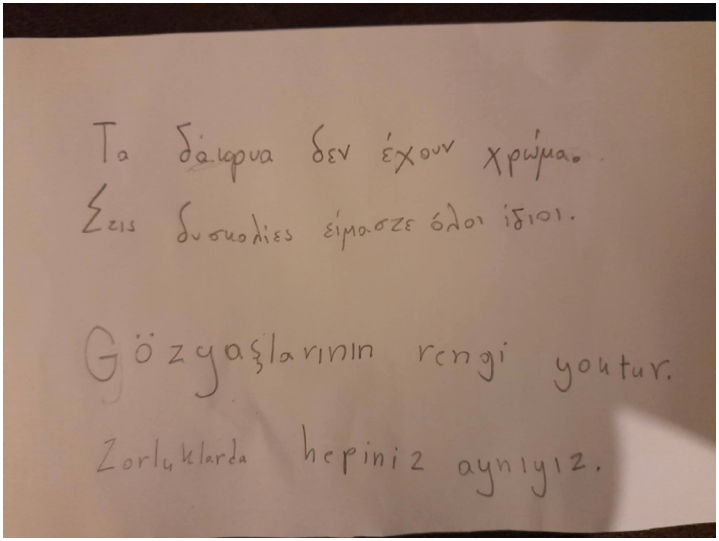 Τα δάκρυα δεν έχουν χρώμα.
Στις δυσκολίες είμαστε όλοι ίδιοι.
Gözyaşlarının rengi youtur.
Zorluklarda hepiniz aynıyız.